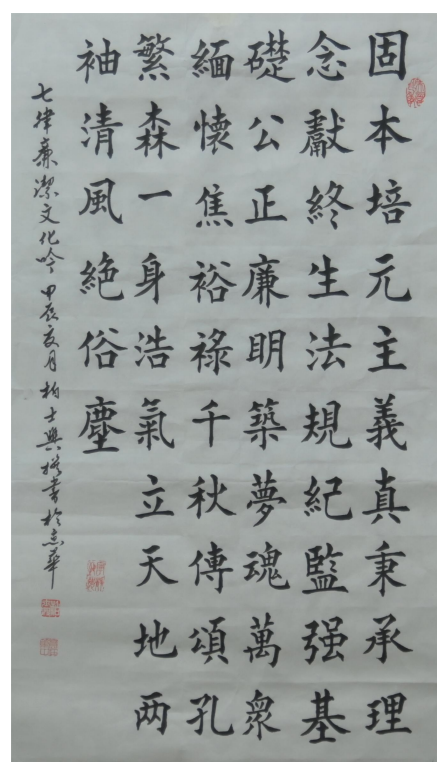 固本培元主義真秉承理
念獻終生法規紀監强基
礎公正廉明築夢魂萬衆
緬懷焦裕祿千秋傳頌孔
繁森一身浩氣立天地两
袖清風絶俗塵
七律廉潔文化吟甲辰夏月柏士興撰书於志華